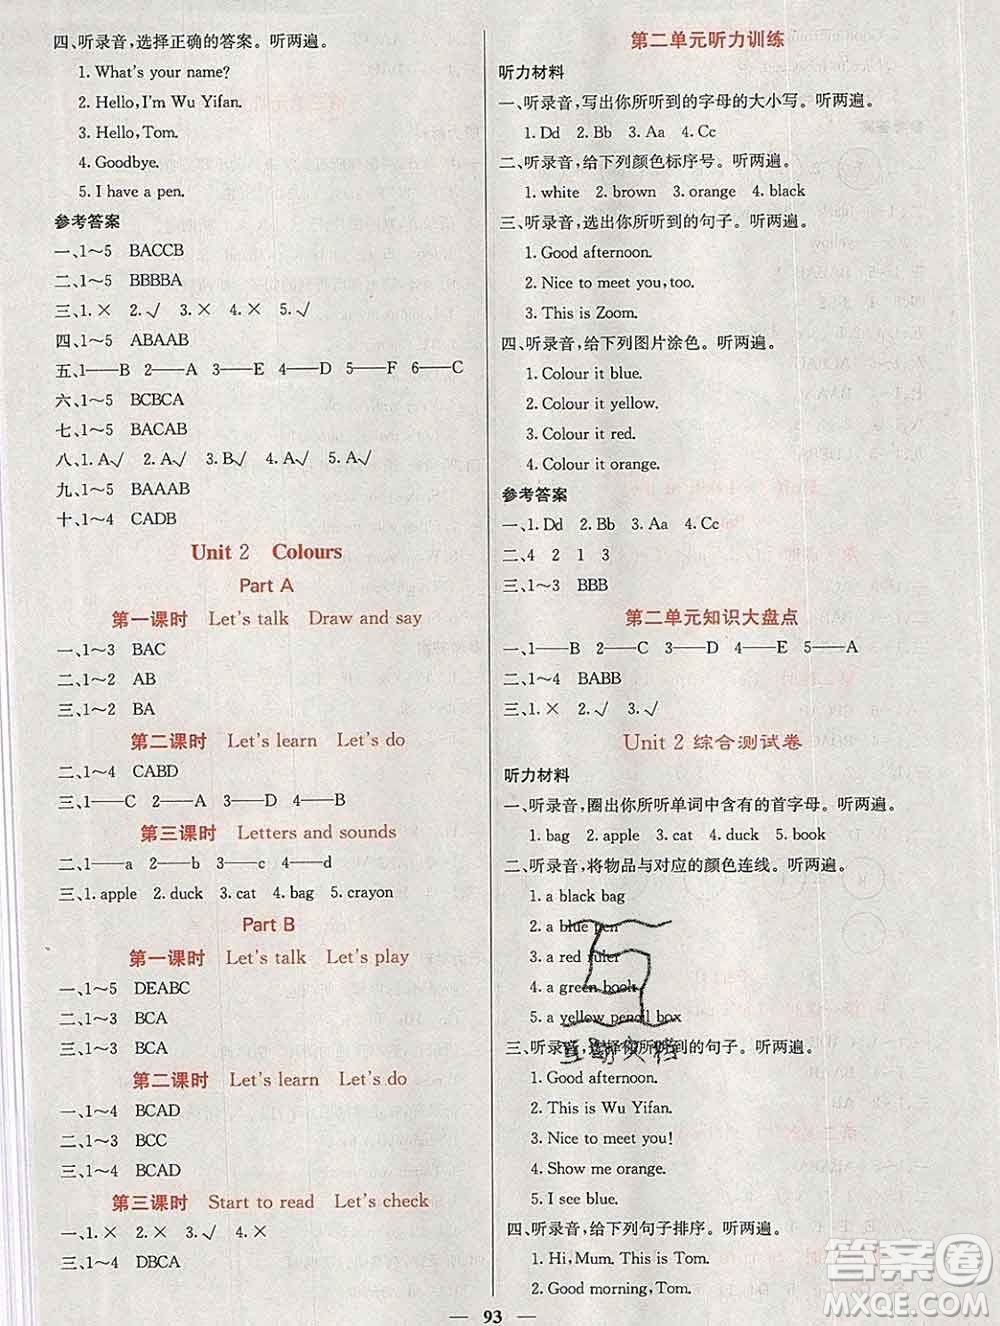 四、听录音,选择正确的答案。听两遍。
1. What's your name?
2. Hello, I'm Wu Yifan.
3. Hello, Tom.
4. Goodbye.
5. I have a pen.
参考答案
一、1～5 BACCB
二、1～5 BBBBA
三、1.× 2.√ 3.× 4.× 5.√
四、1～5 ABAAB
五、1——B 2——A 3——E 4——D 5——F 6——C
六、1～5 BCBCA
七、1～5 BACAB
八、1.A√ 2.A√ 3.B√ 4.A√ 5.A√
九、1～5 BAAAB
十、1～4 CADB
Unit 2 Colours
Part A
第一课时 Let's talk Draw and say
一、1～3 BAC
二、1～2 AB
三、1～2 BA
第二课时 Let's learn Let's do
二、1～4 CABD
三、1——C 2——A 3——B 4——D
第三课时 Letters and sounds
二、1——a 2——b 3——c 4——d
三、1. apple 2. duck 3. cat 4. bag 5. crayon
Part B
第一课时 Let's talk Let's play
一、1～5 DEABC
二、1～3 BCA
三、1～3 BCA
第二课时 Let's learn Let's do
一、1～4 BCAD
二、1～3 BCC
三、1～4 BCAD
第三课时 Start to read Let's check
一、1.× 2.× 3.√ 4.×
三、1～4 DBCA
第二单元听力训练
听力材料
一、听录音,写出你所听到的字母的大小写。听两遍。
1. Dd 2. Bb 3. Aa 4. Cc
二、听录音,给下列颜色标序号。听两遍。
1. white 2. brown 3. orange 4. black
三、听录音,选出你所听到的句子。听两遍。
1. Good afternoon.
2. Nice to meet you, too.
3. This is Zoom.
四、听录音,给下列图片涂色。听两遍。
1. Colour it blue.
2. Colour it yellow.
3. Colour it red.
4. Colour it orange.
参考答案
一、1. Dd 2. Bb 3. Aa 4. Cc
二、4 2 1 3
三、1～3 BBB
第二单元知识大盘点
一、1——B 2——D 3——C 4——E 5——A
二、1～4 BABB
三、1.× 2.√ 3.√
Unit 2 综合测试卷
听力材料
一、听录音,圈出你所听单词中含有的首字母。听两遍。
1. bag 2. apple 3. cat 4. duck 5. book
二、听录音,将物品与对应的颜色连线。听两遍。
1. a black bag
2. a blue pen
3. a red ruler
4. a green book
5. a yellow pencil box
三、听录音,选择你所听到的句子。听两遍。
1. Good afternoon.
2. This is Wu Yifan.
3. Nice to meet you!
4. Show me orange.
5. I see blue.
四、听录音,给下列句子排序。听两遍。
1. Hi, Mum. This is Tom.
2. Good morning, Tom.
— 93 —
答案圈
MXQE.COM